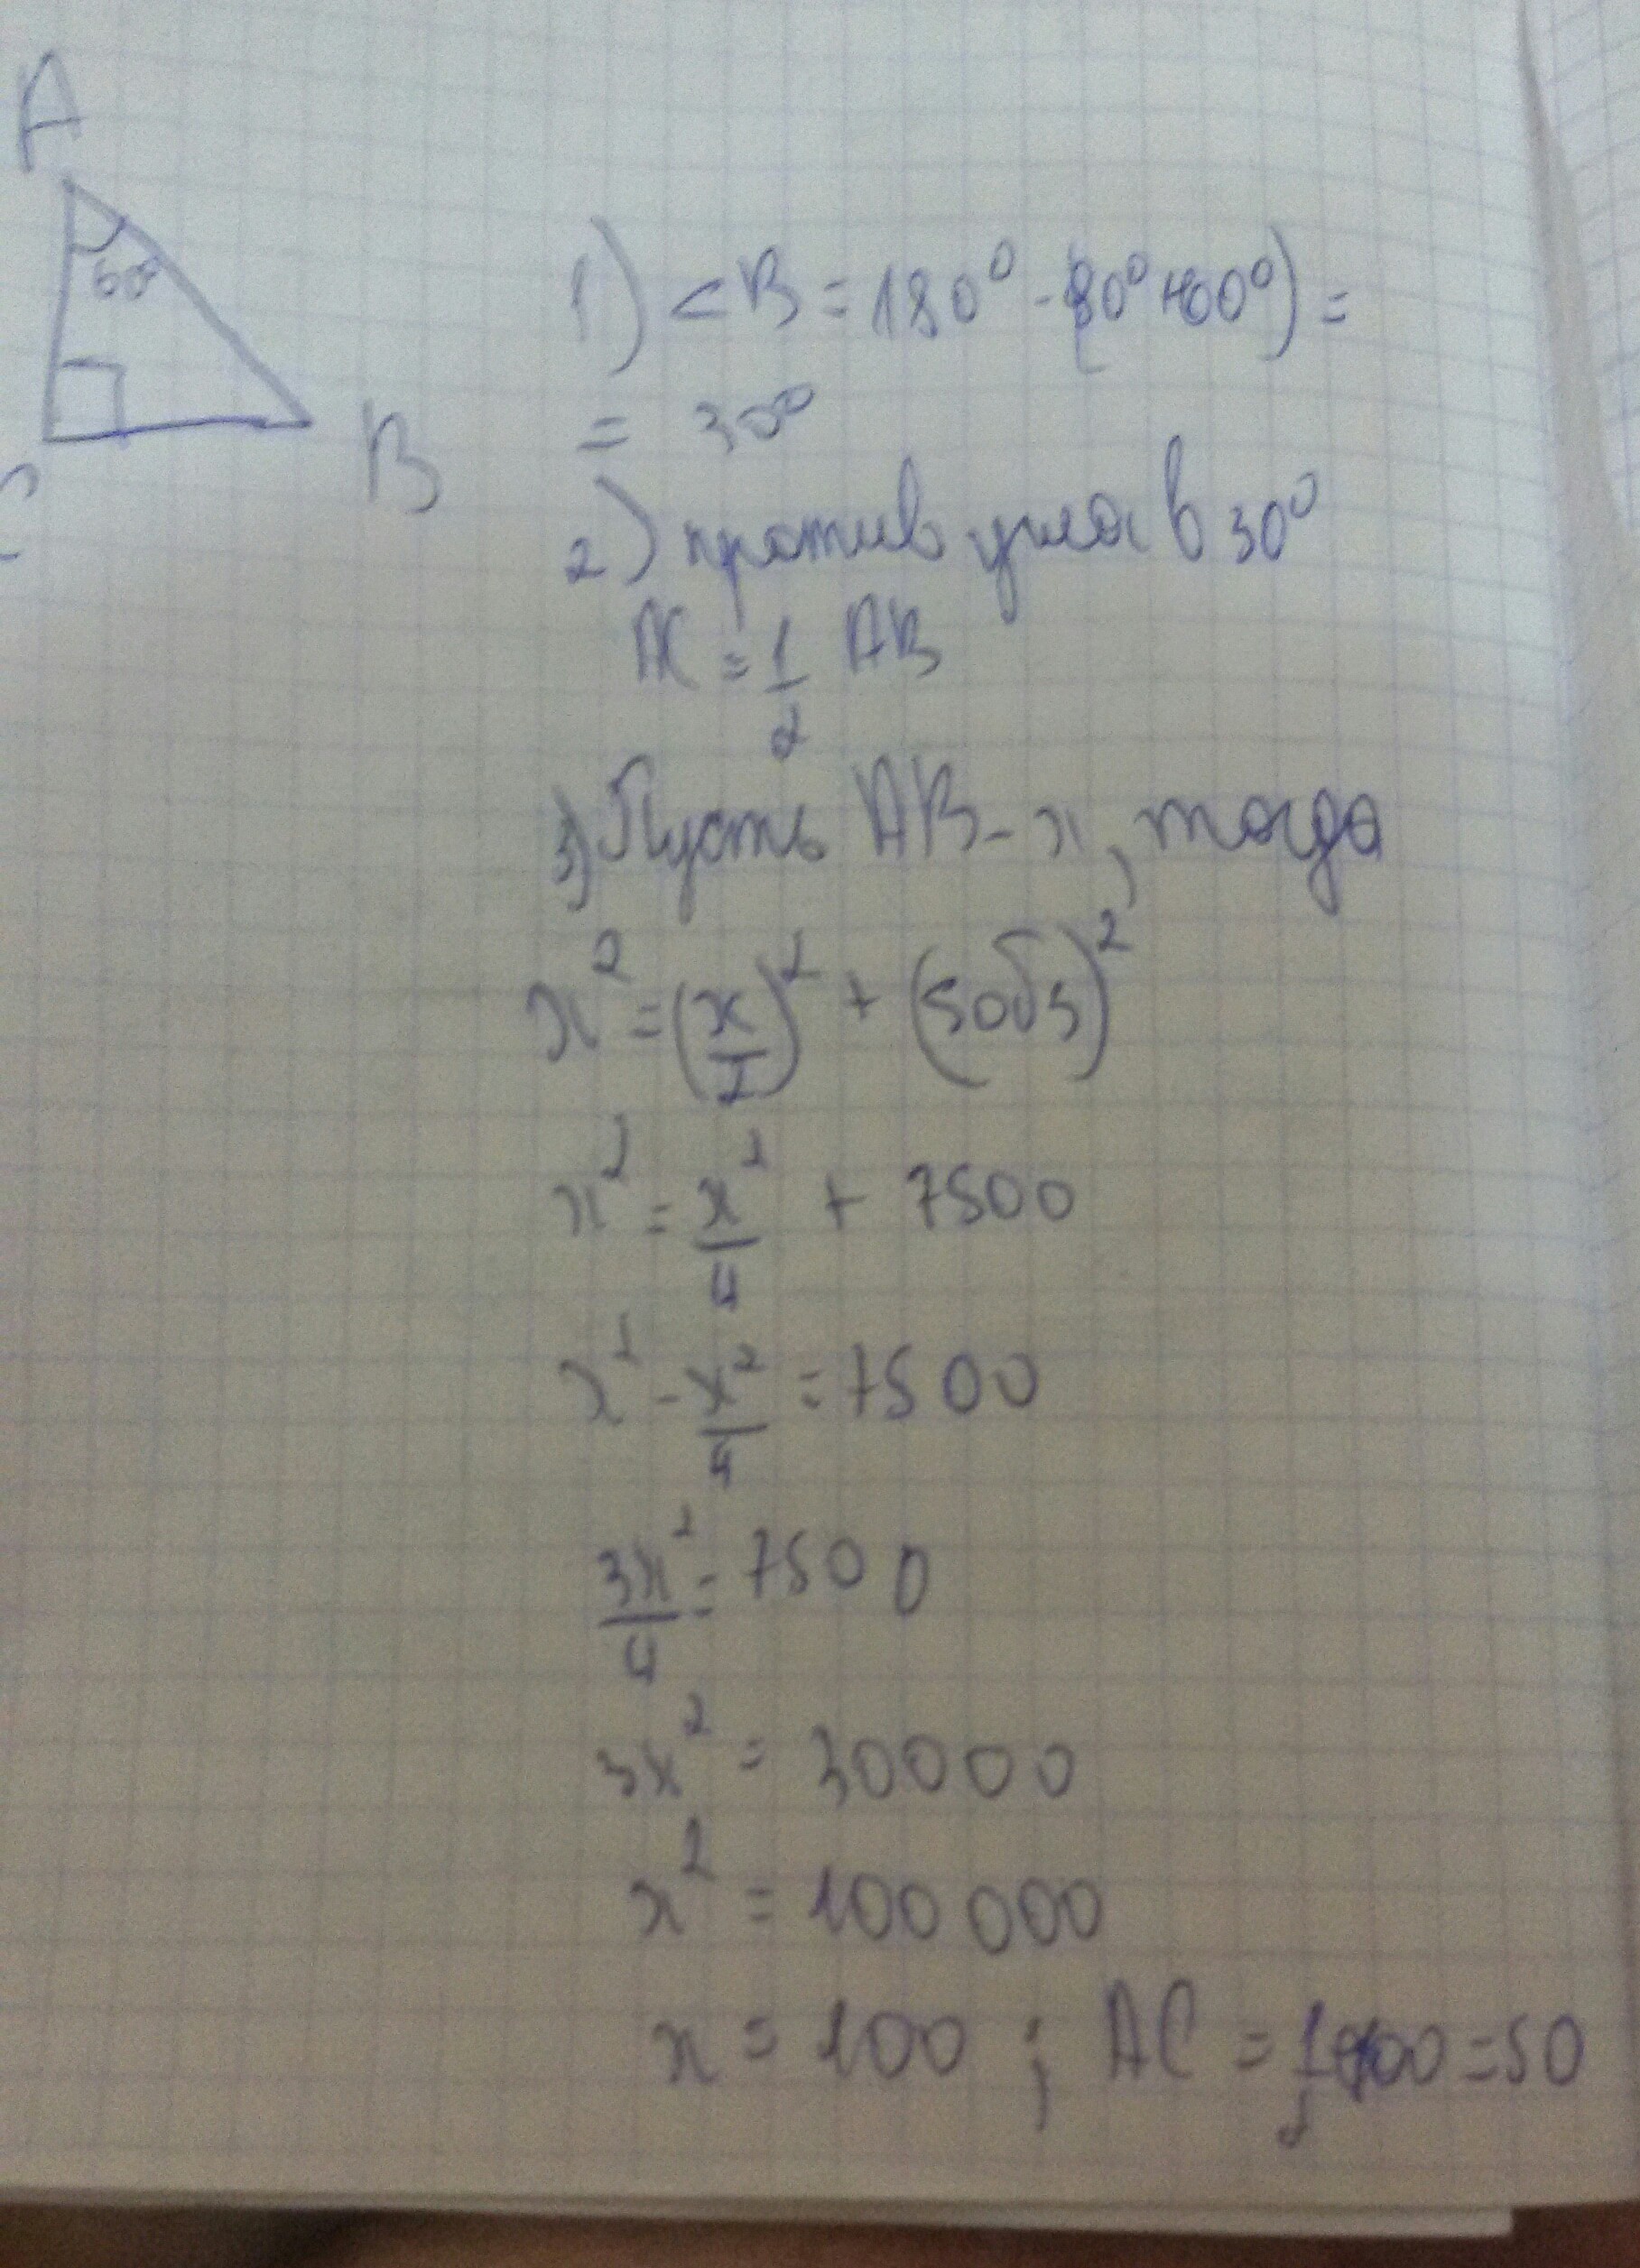 A
60°
C
B
1) <B = 180° - (90° + 60°) =
= 30°
2) против угла в 30°
AC = 1/2 AB
3) Пусть AB - x, тогда
x² = (x/2)² + (50√3)²
x² = x²/4 + 7500
x² - x²/4 = 7500
3x²/4 = 7500
3x² = 30000
x² = 100000
x = 100 ; AC = 1/2 * 100 = 50